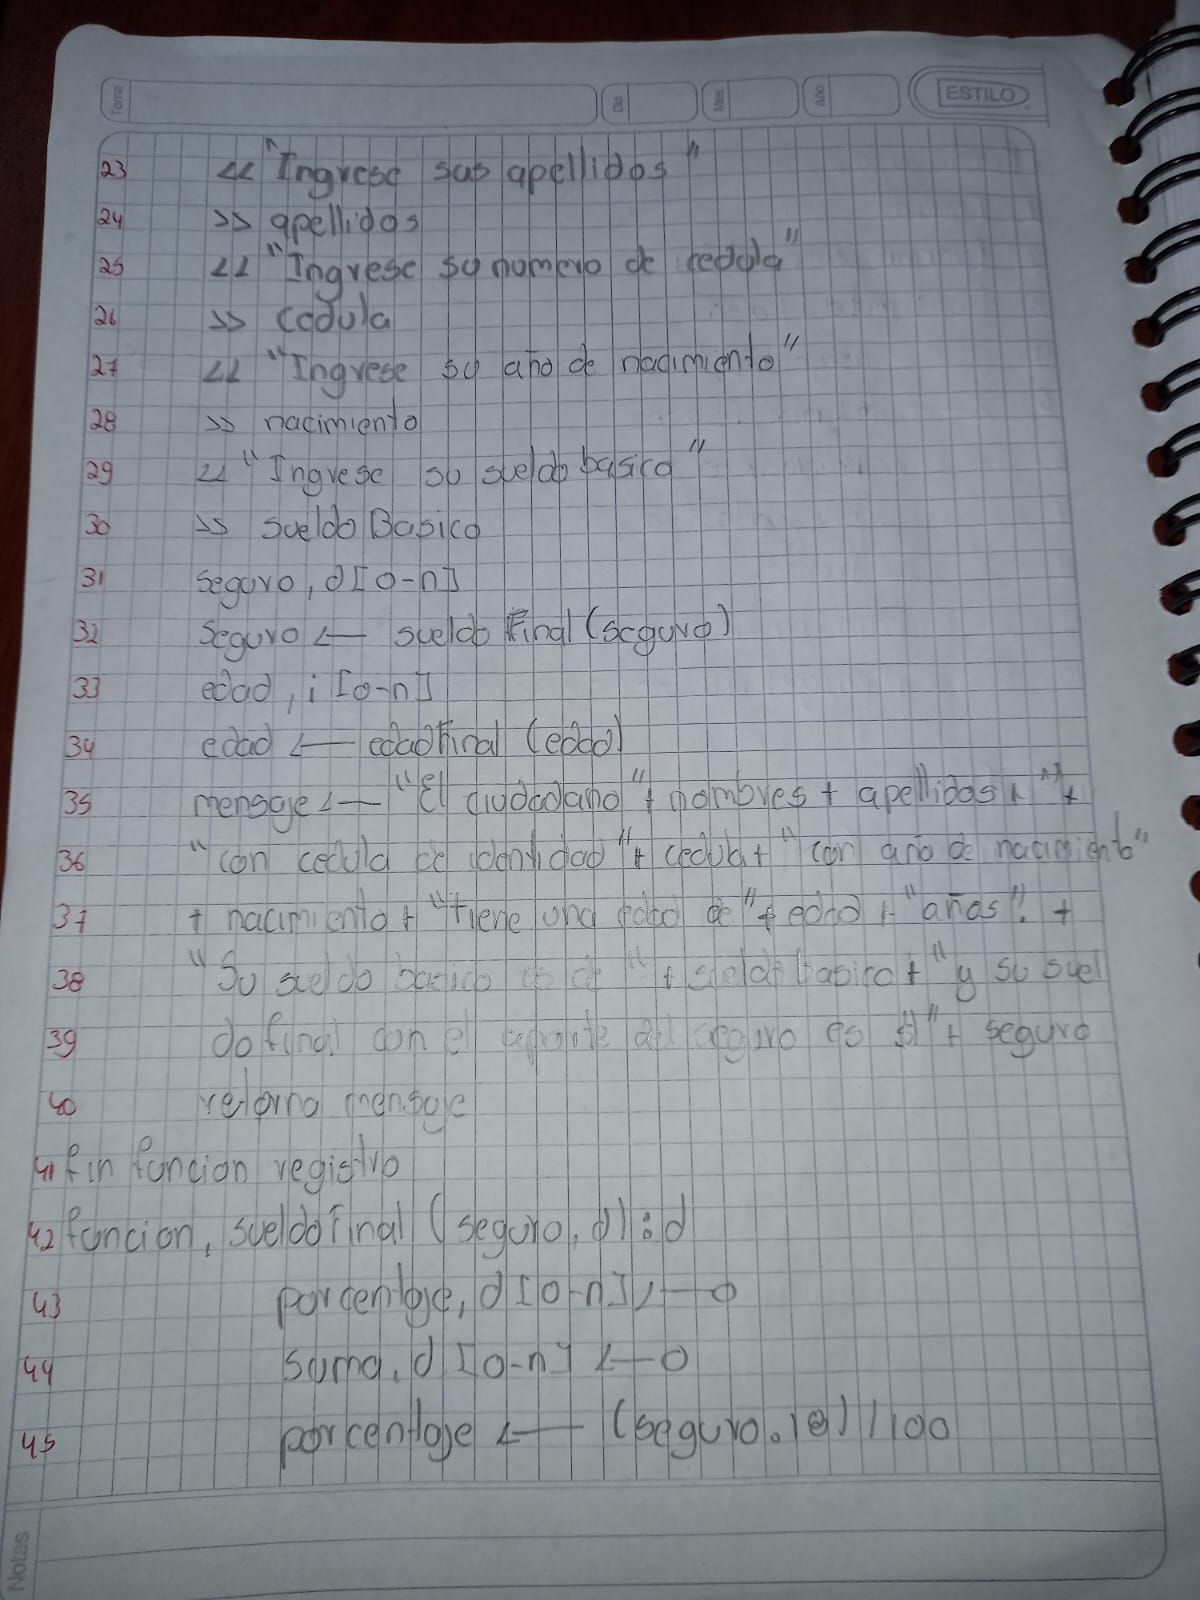 Tema Día Mes Año ESTILO
23 << "Ingrese sus apellidos"
24 >> apellidos
25 << "Ingrese su numero de cedula"
26 >> cedula
27 << "Ingrese su año de nacimiento"
28 >> nacimiento
29 << "Ingrese su sueldo basico"
30 >> sueldo Basico
31 seguro, d [0-n]
32 seguro <— sueldo Final (seguro)
33 edad, i [0-n]
34 edad <— edad Final (edad)
35 mensaje <— "El ciudadano" + nombres + apellidos + " " +
36 "con cedula de identidad" + cedula + "con año de nacimiento"
37 + nacimiento + "tiene una edad de" + edad + "años". +
38 "Su sueldo basico es de" + sueldo basico + "y su suel
39 do final con el aporte al seguro es $" + seguro
40 retorna mensaje
41 fin funcion registro
42 funcion, sueldo Final (seguro, d) : d
43 porcentaje, d [0-n] <— 0
44 suma, d [0-n] <— 0
45 porcentaje <— (seguro . 10) / 100
Notas